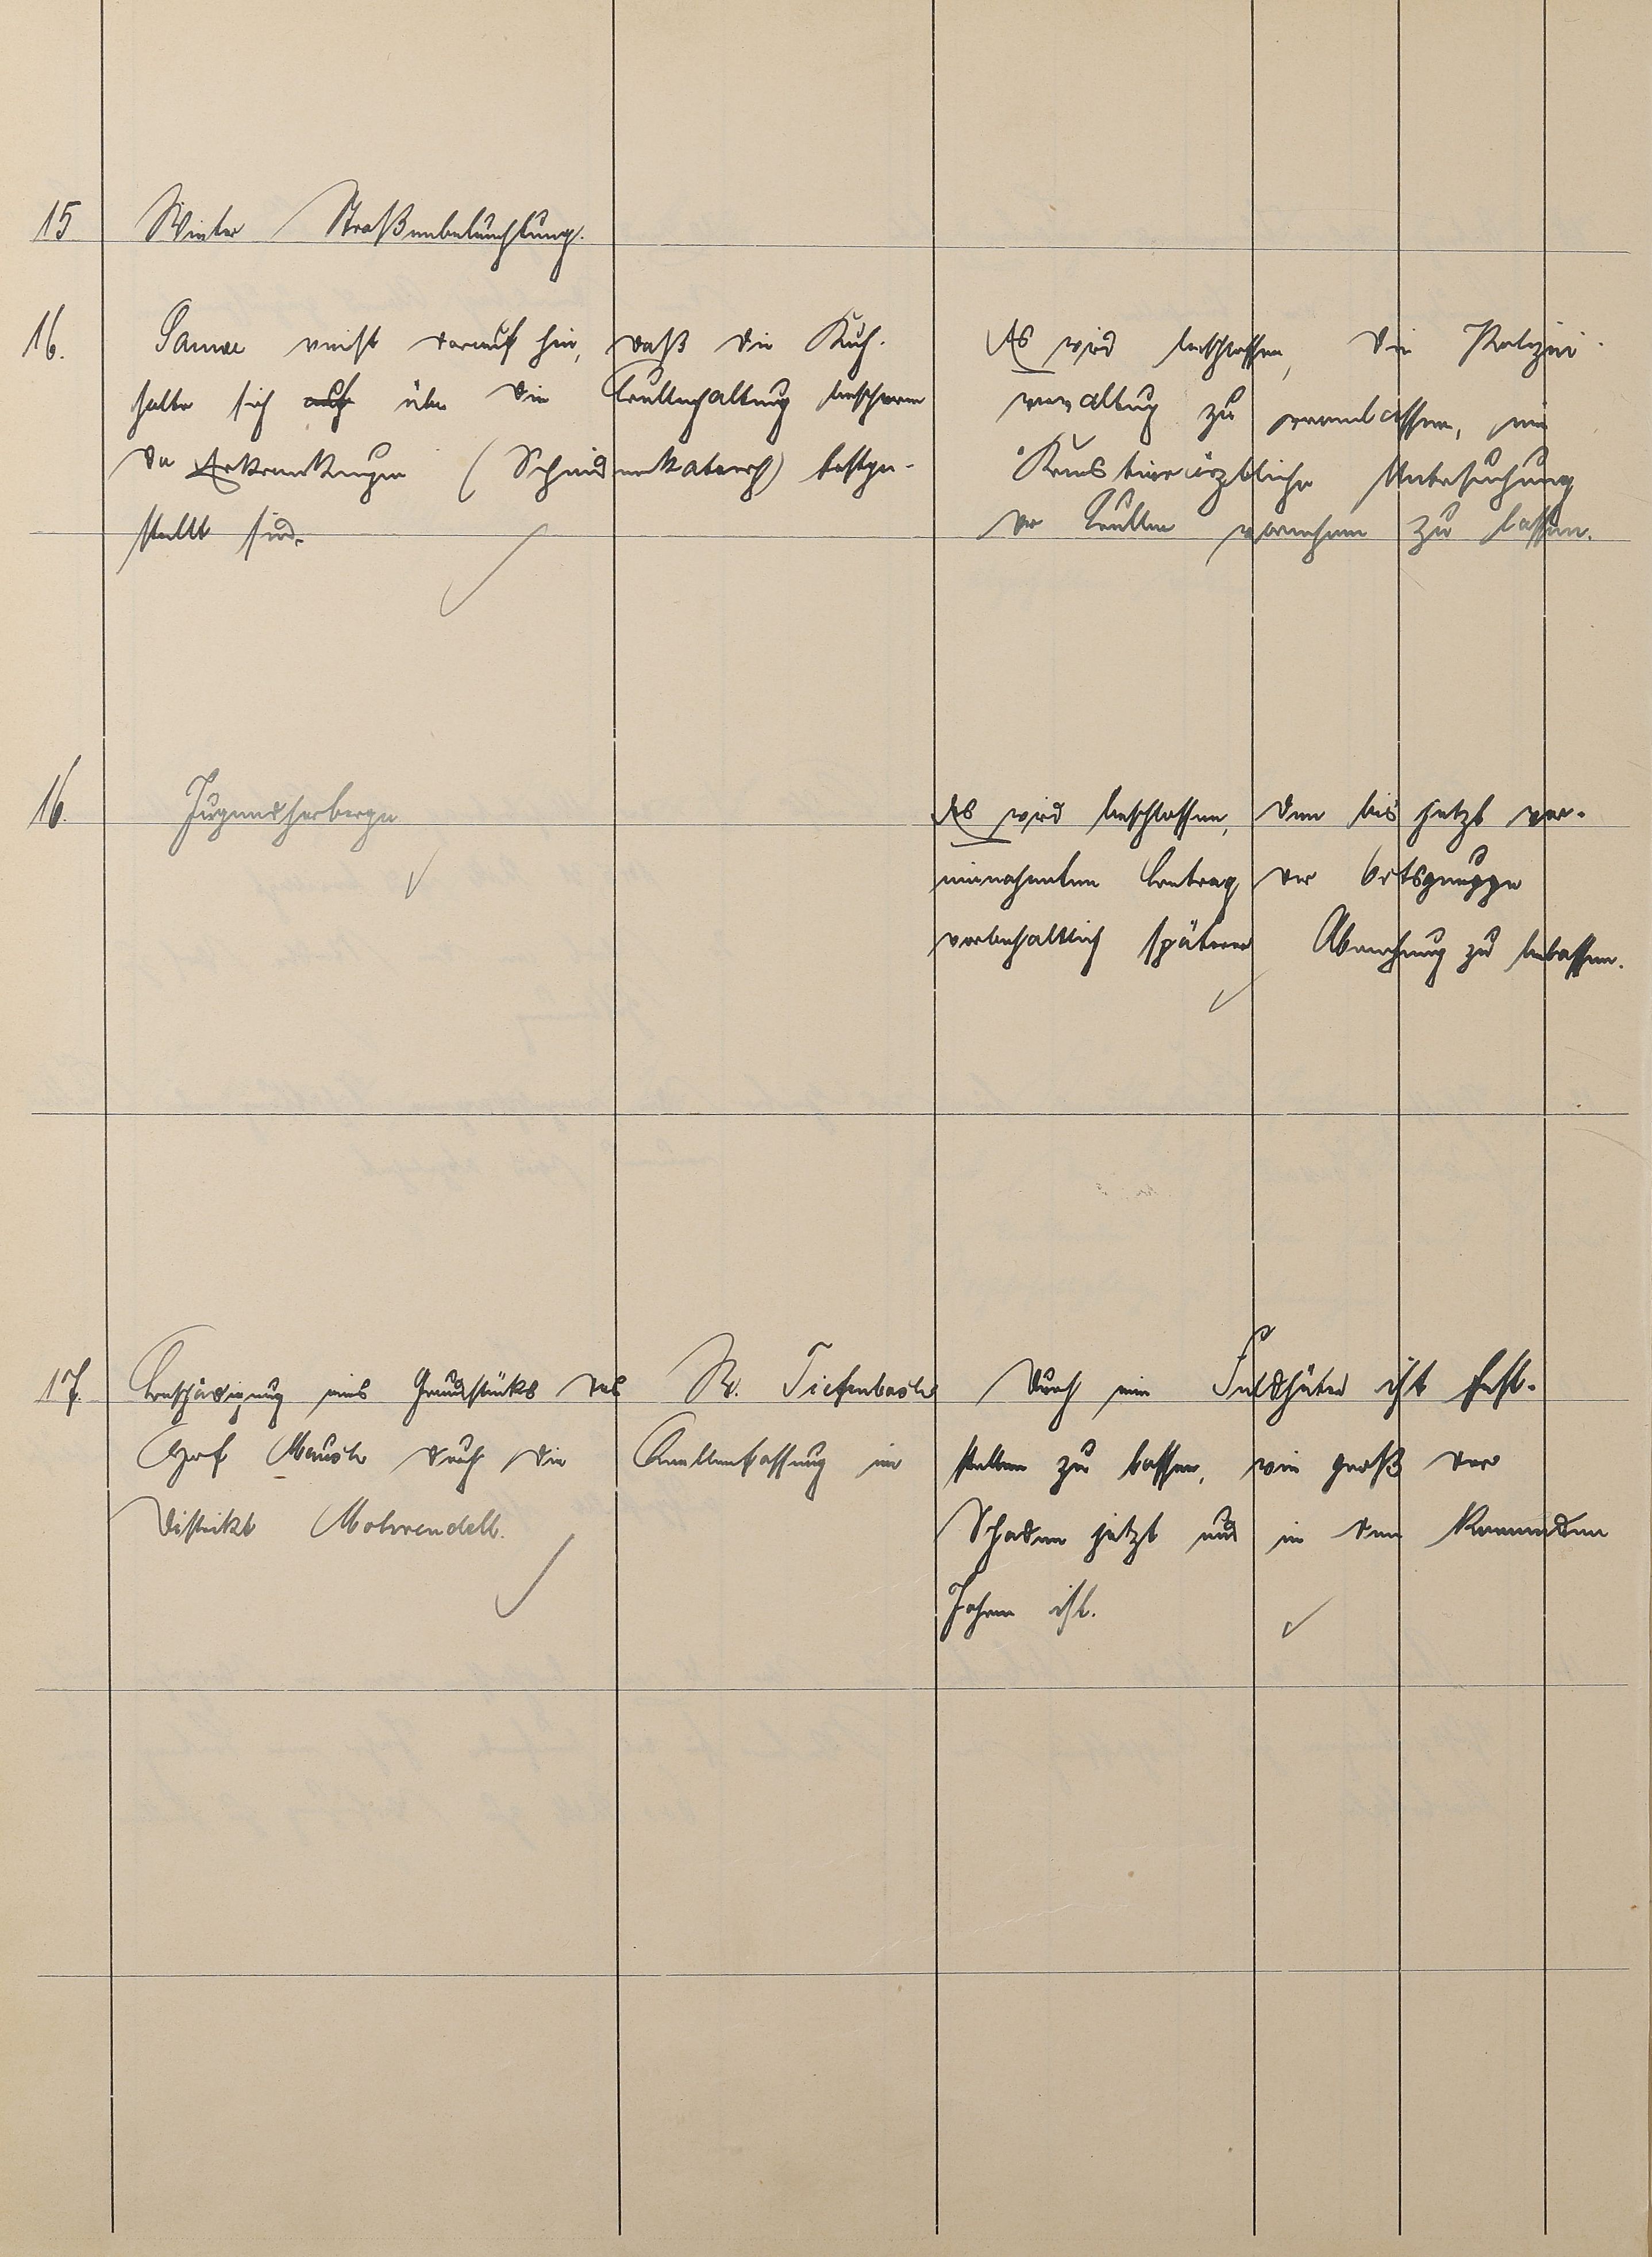 15 Winter Straßenbeleuchtung.
16. Sauer weist darauf hin, daß die Kuh-
halter sich auf über die Bullenhaltung beschweren
da Erkrankungen (Scheidenkatarrh) festge-
stellt sind.
Es wird beschlossen, die Polizei-
verwaltung zu veranlassen, eine
Kreistierärztliche Untersuchung
der Bullen vornehmen zu lassen.
16. Jugendherberge
Es wird beschlossen, den bis jetzt ver-
einnahmten Betrag der Ortsgruppe
vorbehaltlich späterer Abrechnung zu belassen.
17. Beschädigung eines Grundstücks des W. Tiefenbach
Hof durch die Quellenfassung im
Distrikt Mohrendell.
Durch ein Feldhüter ist fest-
stellen zu lassen, wie groß der
Schaden jetzt und in den kommenden
Jahren ist.